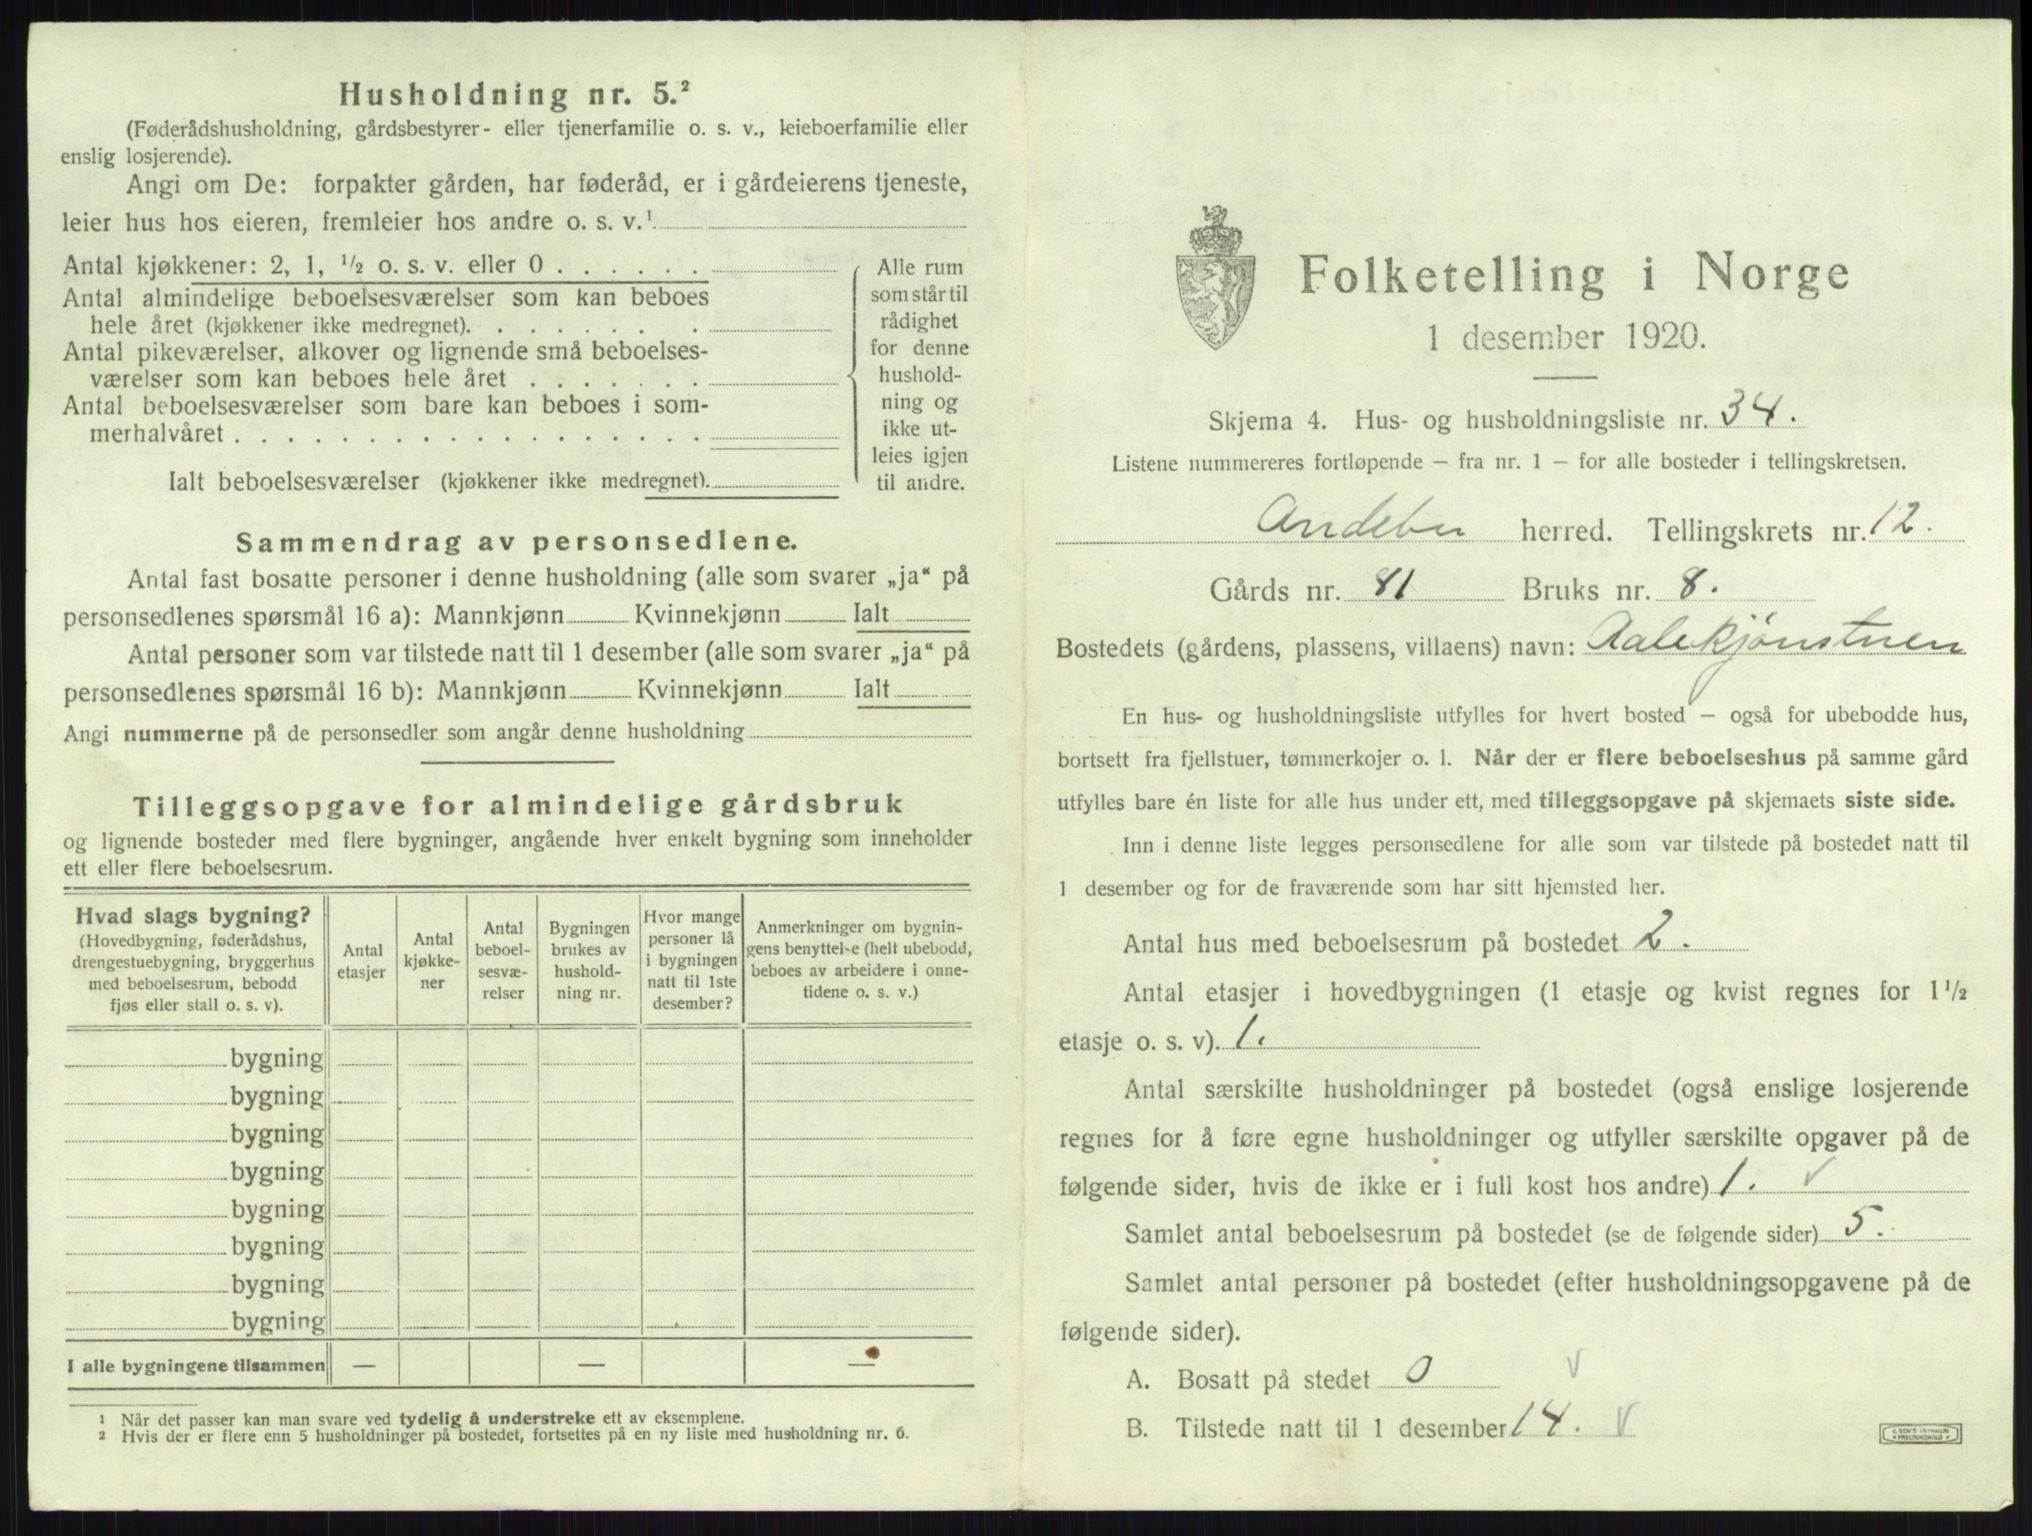 Husholdning nr. 5.²
(Føderådshusholdning, gårdsbestyrer- eller tjenerfamilie o. s. v., leieboerfamilie eller
enslig losjerende).
Angi om De: forpakter gården, har føderåd, er i gårdeierens tjeneste,
leier hus hos eieren, fremleier hos andre o. s. v.¹
Antal kjøkkener: 2, 1, ½ o. s. v. eller 0 . . . . . .
Antal almindelige beboelsesværelser som kan beboes
hele året (kjøkkener ikke medregnet). . . . . . . .
Antal pikeværelser, alkover og lignende små beboelses-
værelser som kan beboes hele året . . . . . . .
Antal beboelsesværelser som bare kan beboes i som-
merhalvåret . . . . . . . . . . . . . . . . . .
Ialt beboelsesværelser (kjøkkener ikke medregnet).
Alle rum
som står til
rådighet
for denne
hushold-
ning og
ikke ut-
leies igjen
til andre.
Sammendrag av personsedlene.
Antal fast bosatte personer i denne husholdning (alle som svarer „ja“ på
personsedlenes spørsmål 16 a): Mannkjønn Kvinnekjønn Ialt
Antal personer som var tilstede natt til 1 desember (alle som svarer „ja“ på
personsedlenes spørsmål 16 b): Mannkjønn Kvinnekjønn Ialt
Angi nummerne på de personsedler som angår denne husholdning
Tilleggsopgave for almindelige gårdsbruk
og lignende bosteder med flere bygninger, angående hver enkelt bygning som inneholder
ett eller flere beboelsesrum.
Hvad slags bygning?
(Hovedbygning, føderådshus,
drengestuebygning, bryggerhus
med beboelsesrum, bebodd
fjøs eller stall o. s. v).
Antal
etasjer
Antal
kjøkke-
ner
Antal
beboel-
sesvæ-
relser
Bygningen
brukes av
hushold-
ning nr.
Hvor mange
personer lå
i bygningen
natt til 1ste
desember?
Anmerkninger om bygnin-
gens benyttelse (helt ubebodd,
beboes av arbeidere i onne-
tidene o. s. v.)
bygning
bygning
bygning
bygning
bygning
bygning
bygning
bygning
I alle bygningene tilsammen — — —
¹ Når det passer kan man svare ved tydelig å understreke ett av eksemplene.
² Hvis der er flere enn 5 husholdninger på bostedet, fortsettes på en ny liste med husholdning nr. 6.
Folketelling i Norge
1 desember 1920.
Skjema 4. Hus- og husholdningsliste nr. 34.
Listene nummereres fortløpende — fra nr. 1 — for alle bosteder i tellingskretsen.
Andebu herred. Tellingskrets nr. 12.
Gårds nr. 81 Bruks nr. 8.
Bostedets (gårdens, plassens, villaens) navn: Aalekjønstuen
En hus- og husholdningsliste utfylles for hvert bosted — også for ubebodde hus,
bortsett fra fjellstuer, tømmerkojer o. l. Når der er flere beboelseshus på samme gård
utfylles bare én liste for alle hus under ett, med tilleggsopgave på skjemaets siste side.
Inn i denne liste legges personsedlene for alle som var tilstede på bostedet natt til
1 desember og for de fraværende som har sitt hjemsted her.
Antal hus med beboelsesrum på bostedet 2.
Antal etasjer i hovedbygningen (1 etasje og kvist regnes for 1½
etasje o. s. v). 1.
Antal særskilte husholdninger på bostedet (også enslige losjerende
regnes for å føre egne husholdninger og utfyller særskilte opgaver på de
følgende sider, hvis de ikke er i full kost hos andre) 1. √
Samlet antal beboelsesrum på bostedet (se de følgende sider) 5.
Samlet antal personer på bostedet (efter husholdningsopgavene på de
følgende sider).
A. Bosatt på stedet 0 √
B. Tilstede natt til 1 desember 14. √